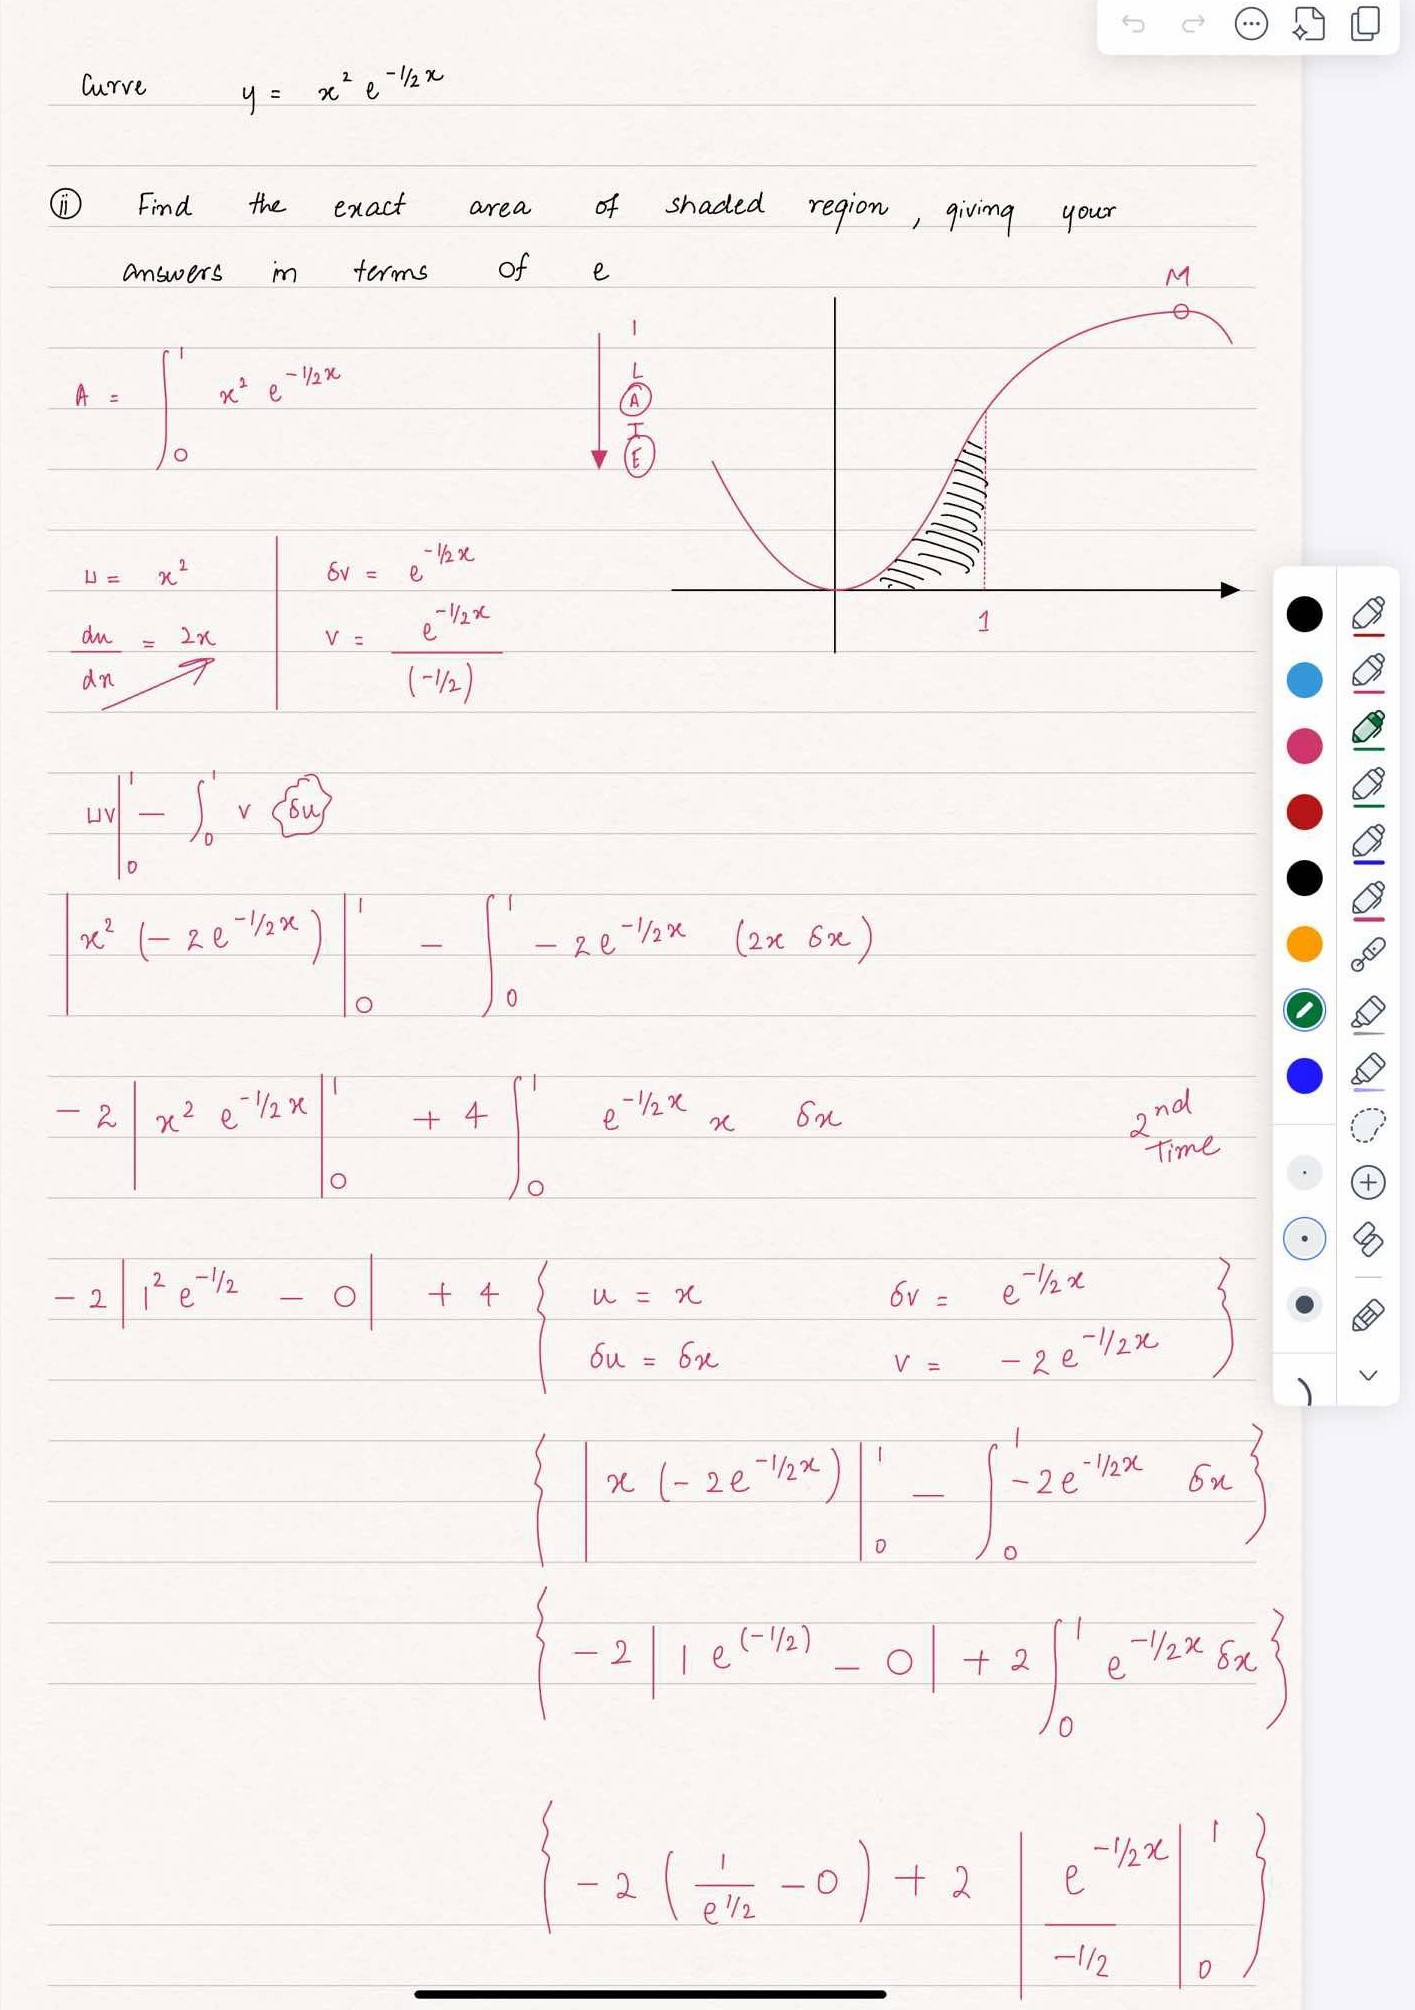 Curve y = x² e^(-1/2 x)
ii Find the exact area of shaded region, giving your
answers in terms of e
M
A = ∫₀¹ x² e^(-1/2 x)
I
L
A
T
E
1
u = x² δv = e^(-1/2 x)
du/dx = 2x v = e^(-1/2 x) / (-1/2)
uv|₀¹ - ∫₀¹ v δu
|x² (-2e^(-1/2 x))|₀¹ - ∫₀¹ -2e^(-1/2 x) (2x δx)
-2 |x² e^(-1/2 x)|₀¹ + 4 ∫₀¹ e^(-1/2 x) x δx 2nd Time
-2 |1² e^(-1/2) - 0| + 4 { u = x δv = e^(-1/2 x) }
δu = δx v = -2e^(-1/2 x)
{ |x (-2e^(-1/2 x))|₀¹ - ∫₀¹ -2e^(-1/2 x) δx }
{ -2 |1 e^(-1/2) - 0| + 2 ∫₀¹ e^(-1/2 x) δx }
{ -2 (1/e^(1/2) - 0) + 2 |e^(-1/2 x) / (-1/2)|₀¹ }